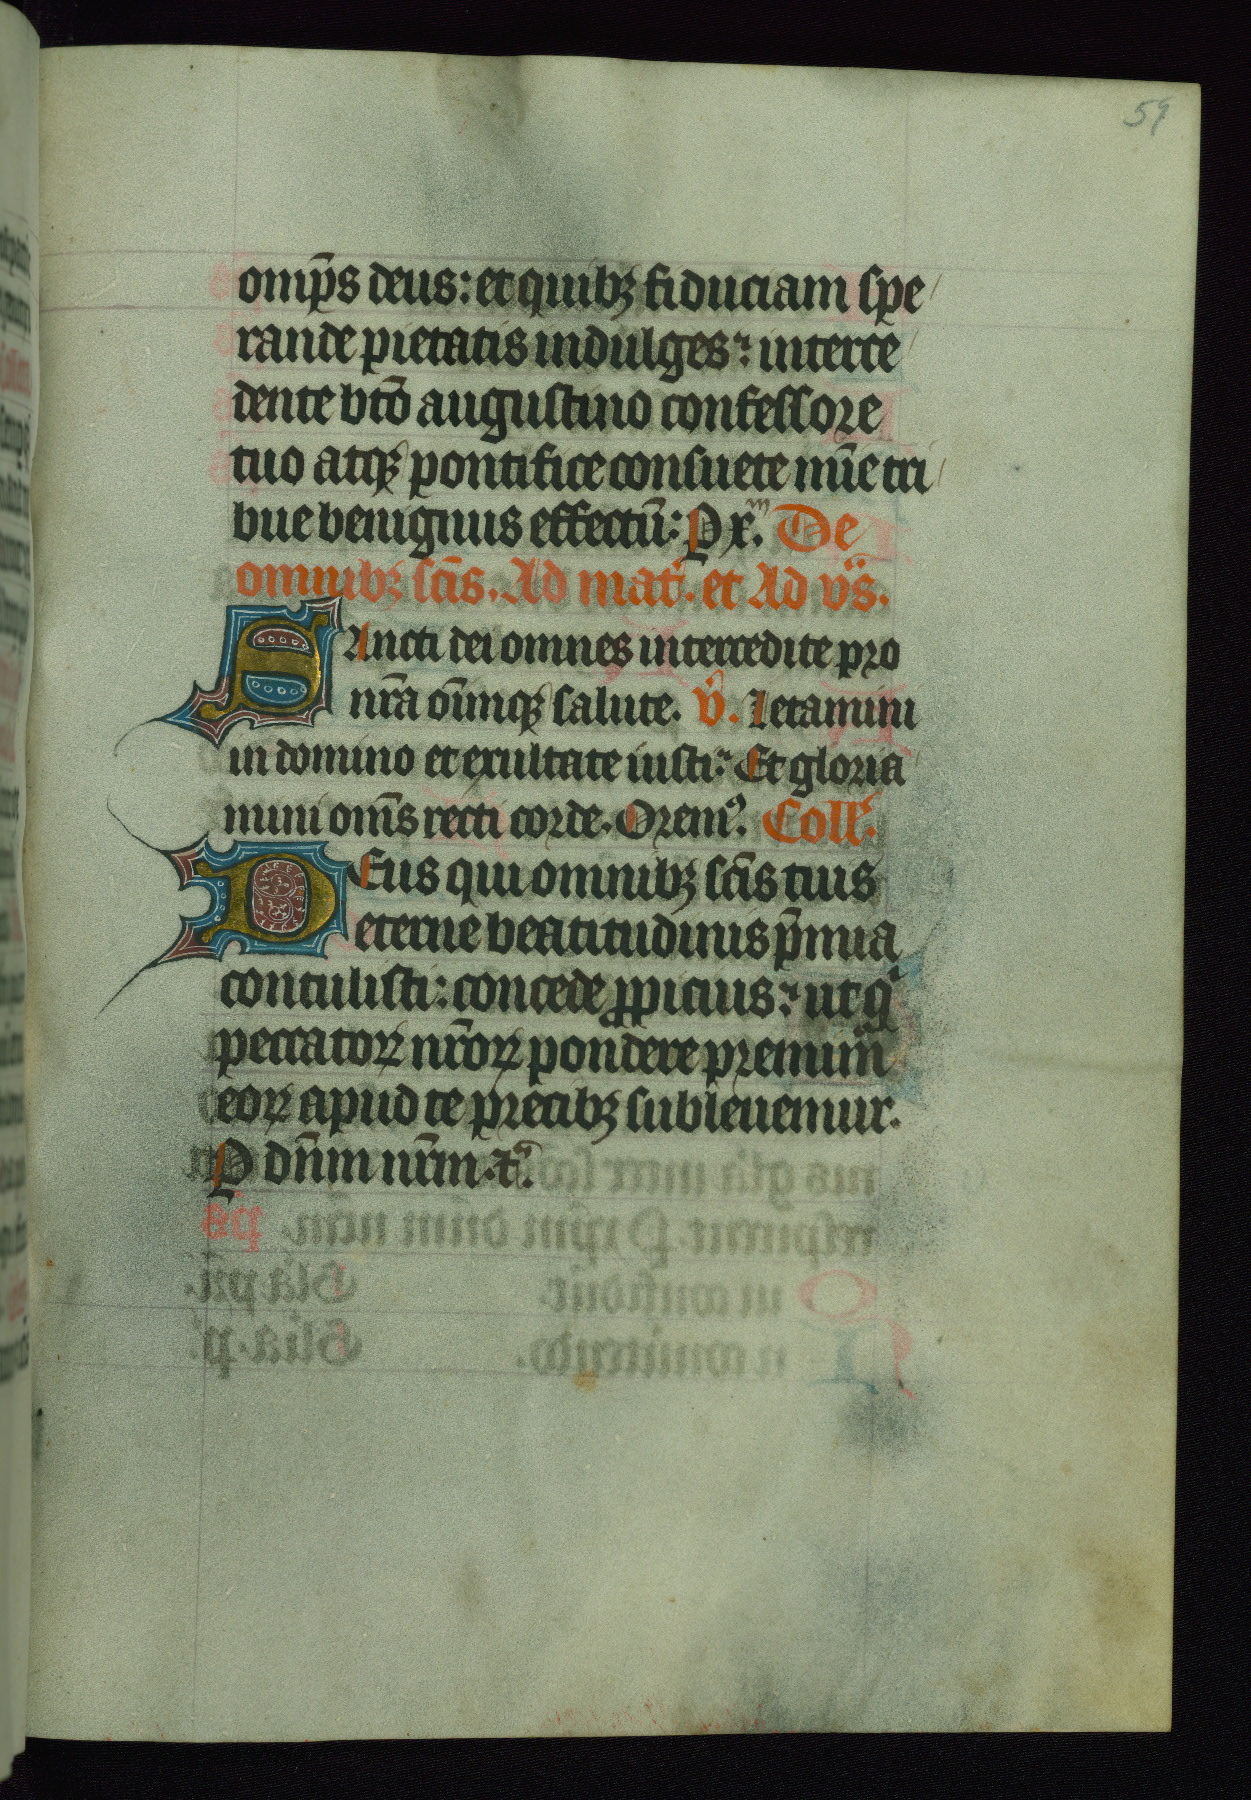 59
omp̄s deus: et quibꝫ fiduciam spe
rande pietatis indulges: interce
dente bt̄o augustino confessore
tuo atqꝫ pontifice consuete mīe tri
bue benignus effectū: P xp̄m. De
omnibꝫ sc̄is. Ad mat̄. et Ad vs̄.
SAncti dei omnes intercedite pro
nr̄a om̄iqꝫ salute. v̄. Letamini
in domino et exultate iusti: Et gloria
mini om̄s recti corde. Oremꝰ. Coll̄.
DEus qui omnibꝫ sc̄is tuis
eterne beatitudinis p̄mia
contulisti: concede ꝓpicius: ut qͥ
peccatoꝝ nr̄oꝝ pondere premim̄
eoꝝ apud te precibꝫ subleuemur.
P dn̄m nr̄m. ⁊c̄.